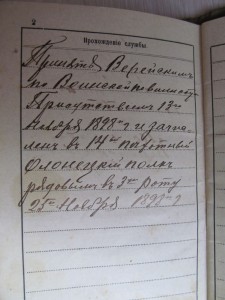 2
Прохожденіе службы.
Принятъ Верейскимъ
по Воинской повинности
Присутствіемъ 13го
Ноября 1898 г и зачис-
ленъ въ 14й пѣхотный
Олонецкій полкъ
рядовымъ въ 3ю роту
25го Ноября 1898 г